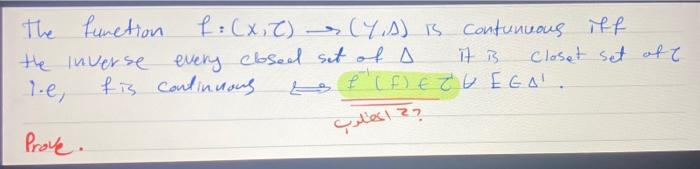 The function f : (X, τ) → (Y, Δ) is contunuous iff
the inverse every closed set of Δ it is closet set of τ
i.e, f is continuous ⟺ f⁻¹(F) ∈ τ' ∀ F ∈ Δ'.
Prove.